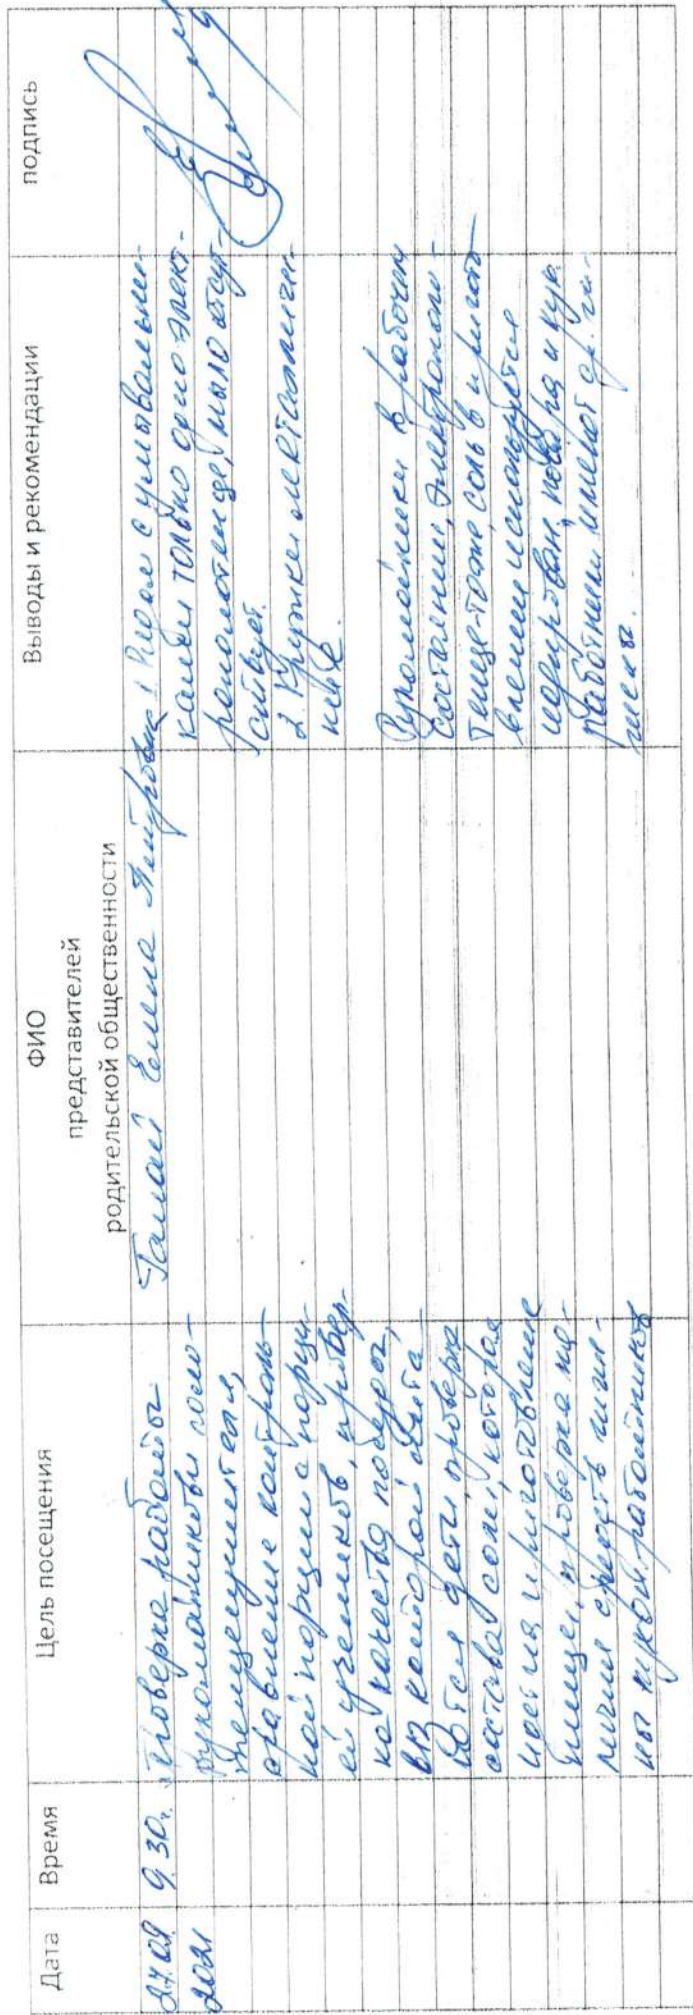 Дата
Время
Цель посещения
ФИО
представителей
родительской общественности
Выводы и рекомендации
подпись
27.09
2021
9.30.
Проверка работы
рукомойников, поло-
сравнение контроль-
ной порции с порци-
ей учеников, провер-
ка качества посуды,
из которой пита-
ются дети, проверка
состава соли, которая
приготовление
пищи, проверка на-
личия средств гиги-
ены кухон. работников
Елена Петровна
1. Рядом с умывальни-
ками только одно элект-
рополотенце, мыло отсут-
ствует.
2. Кружки металличес-
кие.
Рукомойники в рабочем
состоянии, электрополо-
тенце-тоже, соль в пригот-
влении используется
йодирован, повара и кух.
работники имеют ср. ги-
гиены.